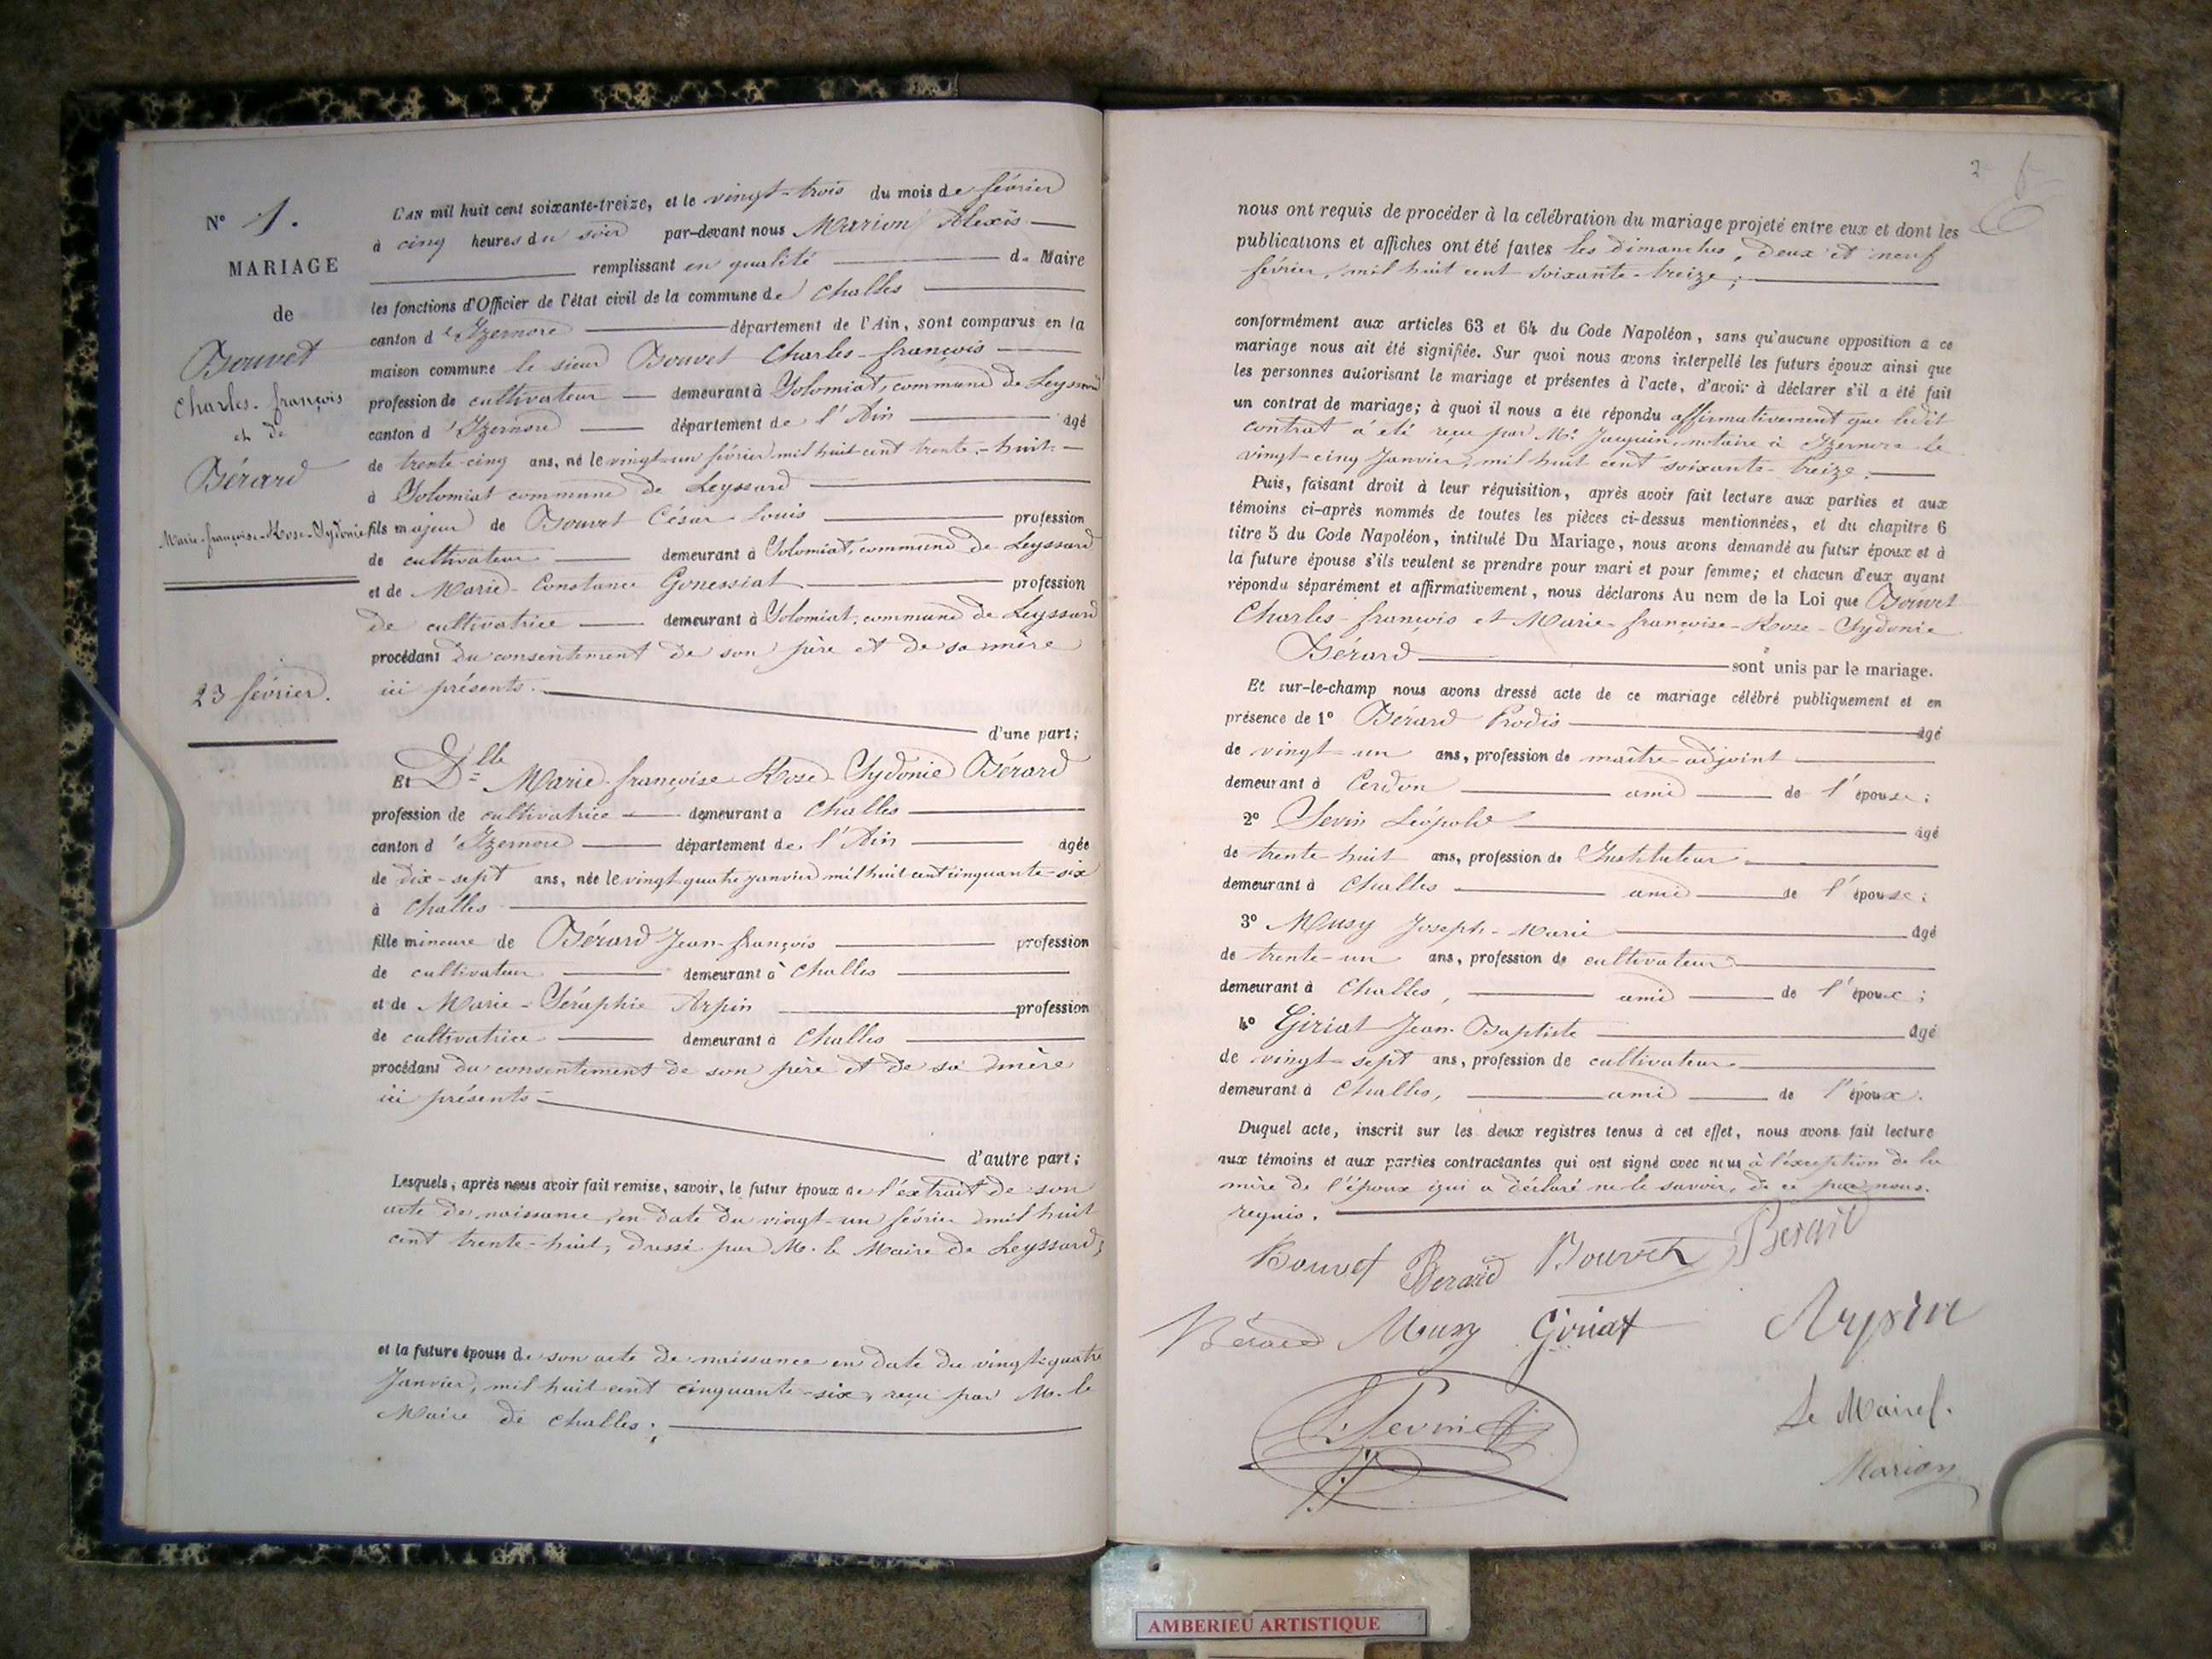 N° 1.
MARIAGE
de
Bouvet
Charles-françois
et de
Bérard
Marie-françoise-Rose-Sydonie
23 février.
L'AN mil huit cent soixante-treize, et le vingt-trois du mois de février
à cinq heures du soir par-devant nous Marion Alexis
remplissant en qualité de Maire
les fonctions d'Officier de l'état civil de la commune de Challes
canton d'Izernore département de l'Ain, sont comparus en la
maison commune le sieur Bouvet Charles-françois
profession de cultivateur demeurant à Solomiat, commune de Leyssard
canton d'Izernore département de l'Ain âgé
de trente-cinq ans, né le vingt-un février mil huit cent trente-huit
à Solomiat commune de Leyssard
fils majeur de Bouvet César Louis profession
de cultivateur demeurant à Solomiat, commune de Leyssard
et de Marie-Constance Gonessiat profession
de cultivatrice demeurant à Solomiat, commune de Leyssard
procédant du consentement de son père et de sa mère
ici présents.
d'une part;
Et Dlle Marie-françoise-Rose-Sydonie Bérard
profession de cultivatrice demeurant à Challes
canton d'Izernore département de l'Ain âgée
de dix-sept ans, née le vingt-quatre janvier mil huit cent cinquante-six
à Challes
fille mineure de Bérard Jean-françois profession
de cultivateur demeurant à Challes
et de Marie-Séraphie Arpin profession
de cultivatrice demeurant à Challes
procédant du consentement de son père et de sa mère
ici présents
d'autre part;
Lesquels, après nous avoir fait remise, savoir, le futur époux de l'extrait de son
acte de naissance, en date du vingt-un février mil huit
cent trente-huit, dressé par M. le Maire de Leyssard;
et la future épouse de son acte de naissance en date du vingt-quatre
Janvier, mil huit cent cinquante-six, reçu par M. le
Maire de Challes;
2
nous ont requis de procéder à la célébration du mariage projeté entre eux et dont les
publications et affiches ont été faites les dimanches, deux et neuf
février, mil huit cent soixante-treize;
conformément aux articles 63 et 64 du Code Napoléon, sans qu'aucune opposition à ce
mariage nous ait été signifiée. Sur quoi nous avons interpellé les futurs époux ainsi que
les personnes autorisant le mariage et présentes à l'acte, d'avoir à déclarer s'il a été fait
un contrat de mariage; à quoi il nous a été répondu affirmativement que ledit
contrat a été reçu par Me Jacquin, notaire à Izernore le
vingt-cinq Janvier, mil huit cent soixante-treize.
Puis, faisant droit à leur réquisition, après avoir fait lecture aux parties et aux
témoins ci-après nommés de toutes les pièces ci-dessus mentionnées, et du chapitre 6
titre 5 du Code Napoléon, intitulé Du Mariage, nous avons demandé au futur époux et à
la future épouse s'ils veulent se prendre pour mari et pour femme; et chacun d'eux ayant
répondu séparément et affirmativement, nous déclarons Au nom de la Loi que Bouvet
Charles-françois et Marie-françoise-Rose-Sydonie
Bérard sont unis par le mariage.
Et sur-le-champ nous avons dressé acte de ce mariage célébré publiquement et en
présence de 1° Bérard Prodis âgé
de vingt-un ans, profession de maître-adjoint
demeurant à Cerdon ami de l'épouse;
2° Sevin Léopold âgé
de trente-huit ans, profession de Instituteur
demeurant à Challes ami de l'épouse;
3° Musy Joseph-Marie âgé
de trente-un ans, profession de cultivateur
demeurant à Challes, ami de l'époux;
4° Giriat Jean-Baptiste âgé
de vingt-sept ans, profession de cultivateur
demeurant à Challes, ami de l'époux.
Duquel acte, inscrit sur les deux registres tenus à cet effet, nous avons fait lecture
aux témoins et aux parties contractantes qui ont signé avec nous à l'exception de la
mère de l'époux qui a déclaré ne le savoir, de ce par nous
requis.
Bouvet Berard Bouvet Berard
Bérard Musy Giriat Arpin
L. Sevin
Le Maire.
Marion
AMBERIEU ARTISTIQUE